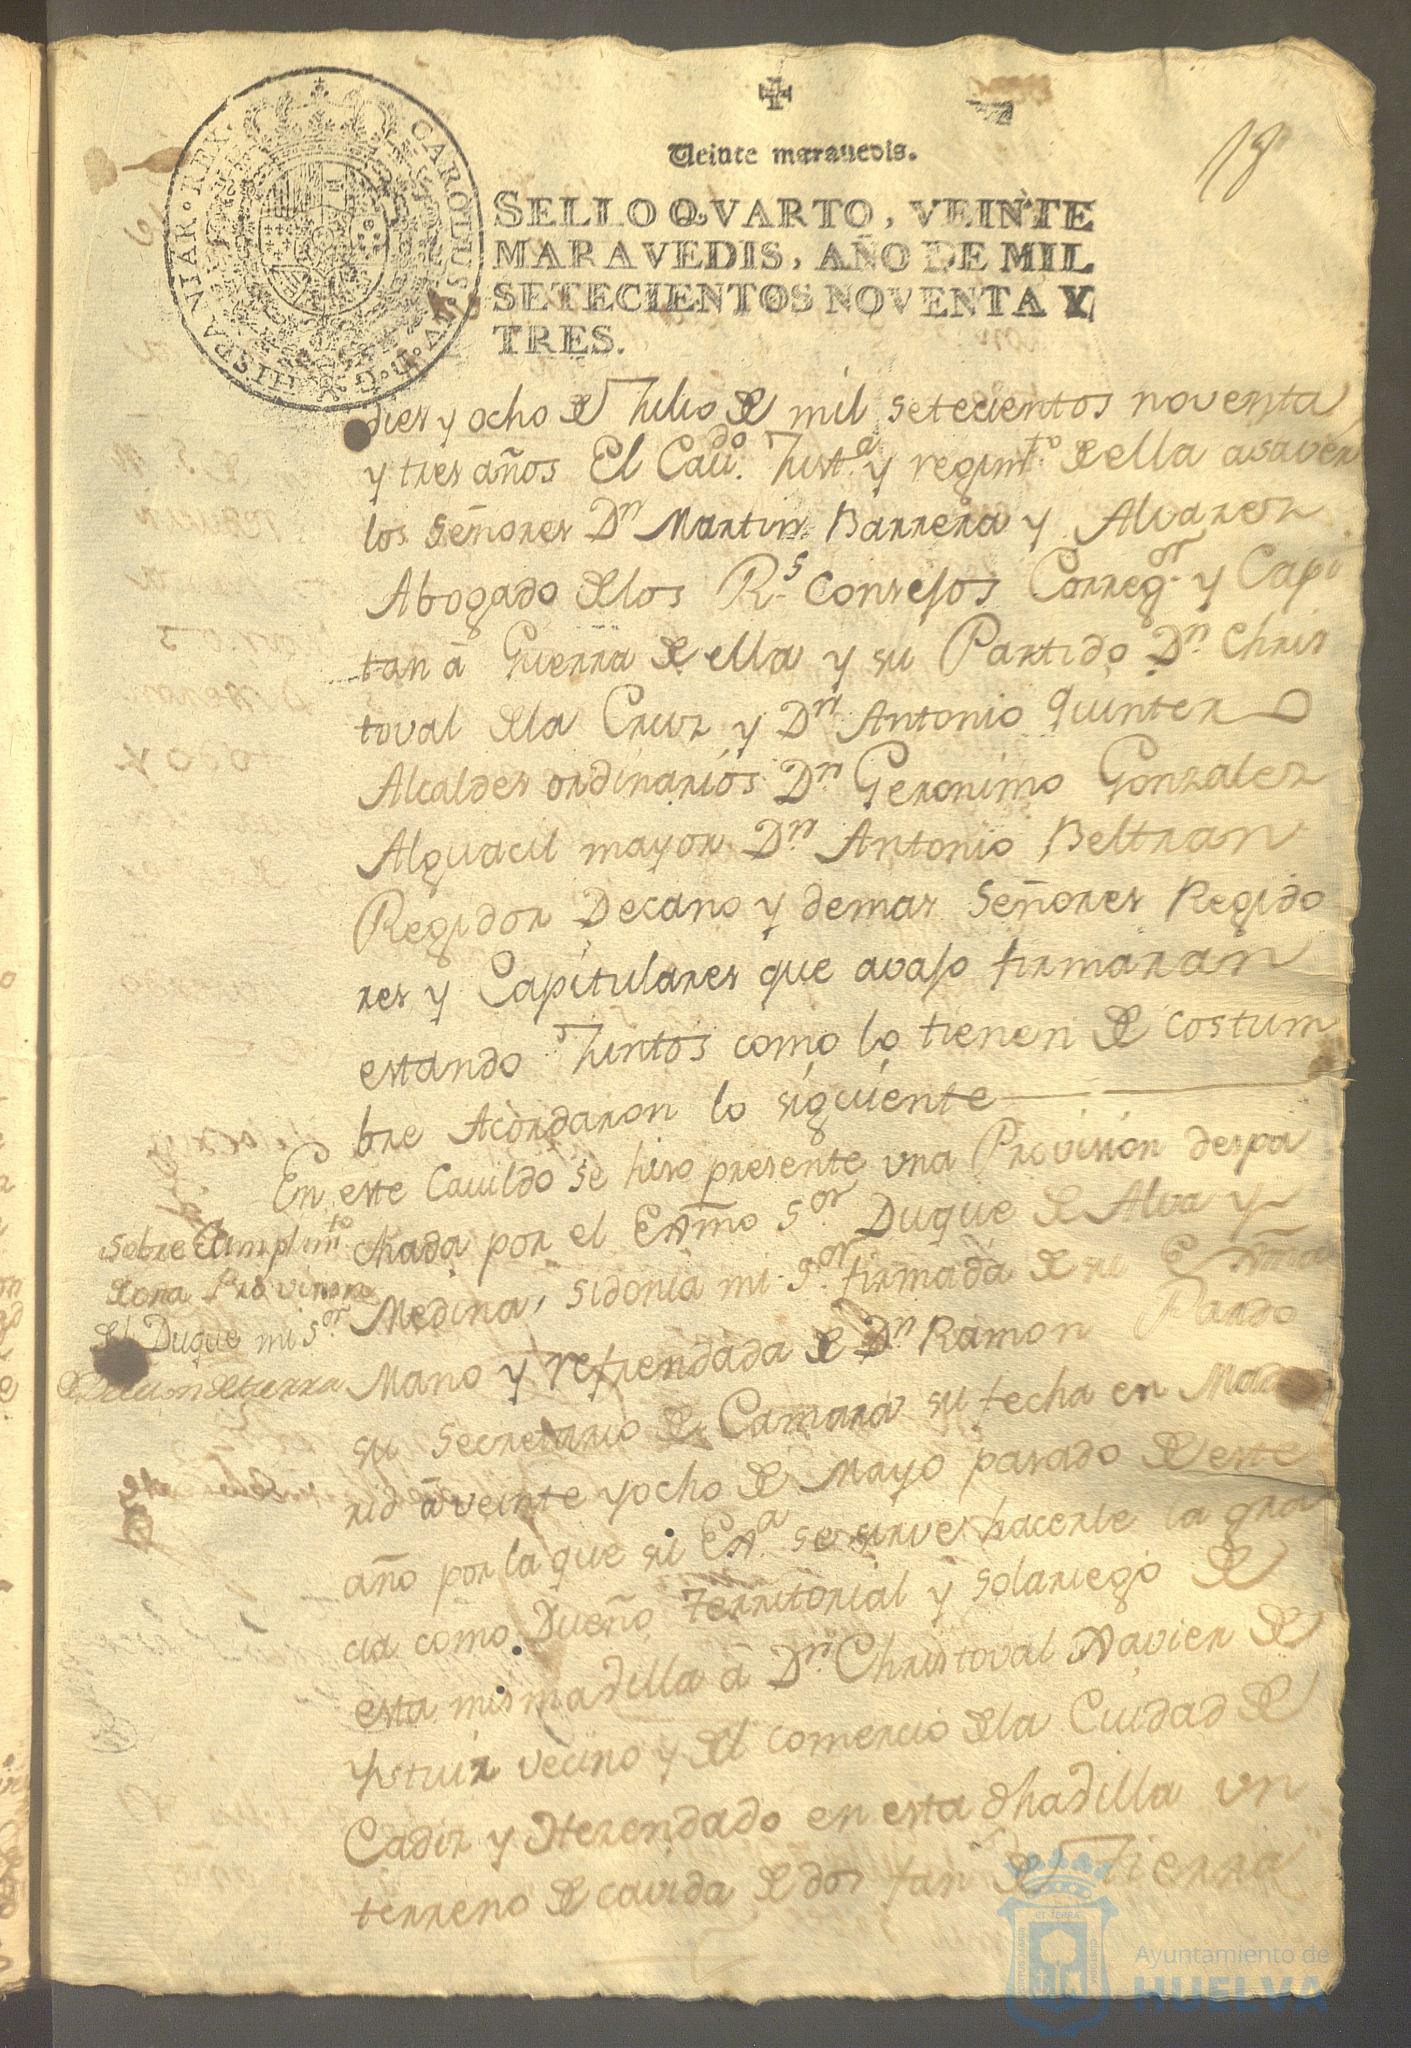 18
Veinte maravedis.
SELLO QVARTO, VEINTE
MARAVEDIS, AÑO DE MIL
SETECIENTOS NOVENTA Y
TRES.
CAROLUS · IV · D · G · HISPANIAR · REX ·
dies y ocho de Julio de mil setecientos noventa
y tres años El Cavdo. Justa. y regimto. de ella asaver
los Señores Dn Martin Barrera y Alvarez
Abogado de los Rs. Consejos Corregor. y Capi
tan à Guerra de ella y su Partido Dn. Chris
toval de la Cruz y Dn Antonio Quintero
Alcaldes ordinarios Dn Geronimo Gonzalez
Alguacil mayor Dn Antonio Beltran
Regidor Decano y demas Señores Regido
res y Capitulares que avajo firmaran
estando Juntos como lo tienen de costum
bre Acordaron lo siguiente
En este Cavildo se hiso presente una Provision despa
chada por el Exmo Sor. Duque de Alva y
Medina, Sidonia mi Sor. firmada de su Exma
Mano y refrendada de Dn Ramon Pardo
su Secretario de Camara su fecha en Mad
rid à veinte y ocho de Mayo pasado de este
año por la que su Exa. se sirve hacerle la gra
cia como Dueño Territorial y solariego de
esta misma dilla à Dn. Christoval Xavier de
Ysturiz vecino y del comercio de la Ciudad de
Cadiz y Hacendado en esta dha dilla un
terreno de cavida de dos fan de Tierra
Sobre Cumplimto
de una Provision
del Duque mi Sor
de tierra
Ayuntamiento de
HUELVA